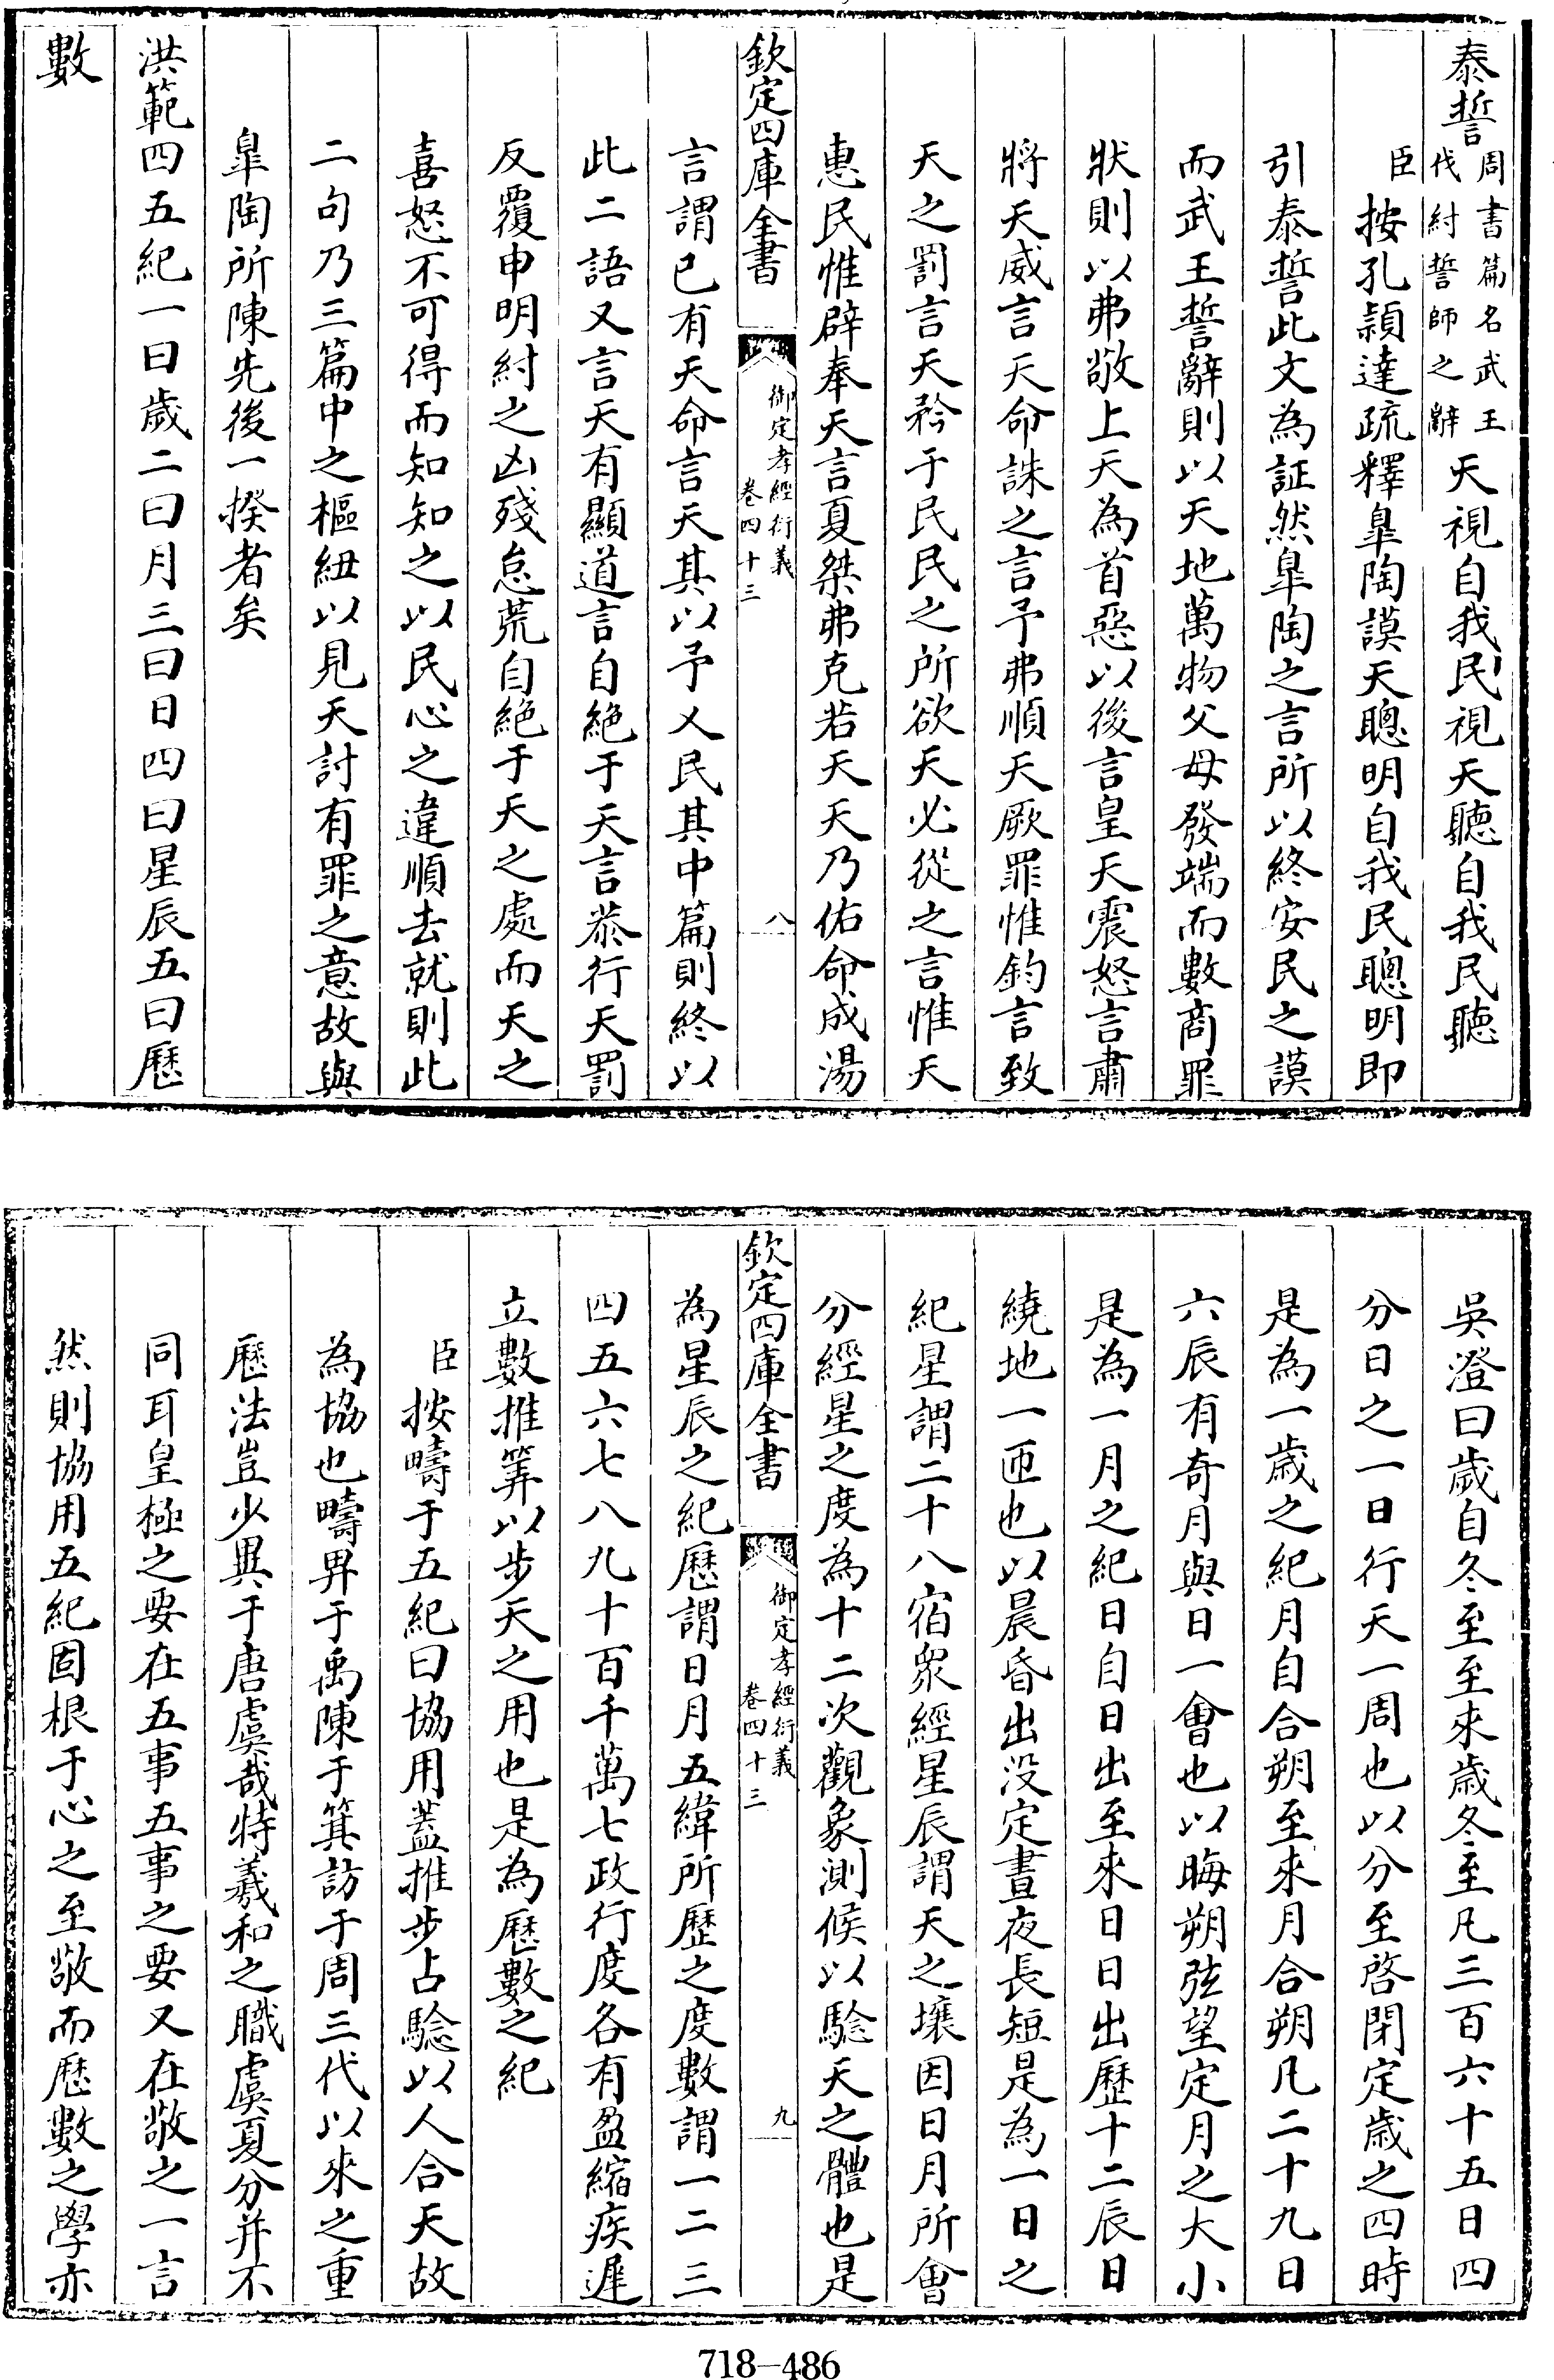 泰誓周書篇名武王伐紂誓師之辭天視自我民視天聽自我民聽
臣按孔頴達疏釋臯陶謨天聰明自我民聰明即
引泰誓此文為証然臯陶之言所以終安民之謨
而武王誓辭則以天地萬物父母發端而數商罪
狀則以弗敬上天為首惡以後言皇天震怒言肅
將天威言天命誅之言予弗順天厥罪惟鈞言致
天之罰言天矜于民民之所欲天必從之言惟天
惠民惟辟奉天言夏桀弗克若天天乃佑命成湯
欽定四庫全書
御定孝經衍義
卷四十三
八
言謂已有天命言天其以予乂民其中篇則終以
此二語又言天有顯道言自絶于天言恭行天罰
反覆申明紂之凶殘怠荒自絶于天之處而天之
喜怒不可得而知知之以民心之違順去就則此
二句乃三篇中之樞紐以見天討有罪之意故與
臯陶所陳先後一揆者矣
洪範四五紀一曰歲二曰月三曰日四曰星辰五曰厯
數
吳澄曰歲自冬至至來歲冬至凡三百六十五日四
分日之一日行天一周也以分至啓閉定歲之四時
是為一歲之紀月自合朔至來月合朔凡二十九日
六辰有奇月與日一會也以晦朔弦望定月之大小
是為一月之紀日自日出至來日日出歷十二辰日
繞地一匝也以晨昏出没定晝夜長短是為一日之
紀星謂二十八宿衆經星辰謂天之壤因日月所會
分經星之度為十二次觀象測候以騐天之體也是
欽定四庫全書
御定孝經衍義
卷四十三
九
為星辰之紀厯謂日月五緯所歷之度數謂一二三
四五六七八九十百千萬七政行度各有盈縮疾遲
立數推筭以步天之用也是為厯數之紀
臣按疇于五紀曰協用蓋推步占騐以人合天故
為協也疇畀于禹陳于箕訪于周三代以來之重
厯法豈少異于唐虞哉特羲和之職虞夏分并不
同耳皇極之要在五事五事之要又在敬之一言
然則協用五紀固根于心之至敬而厯數之學亦
718-486